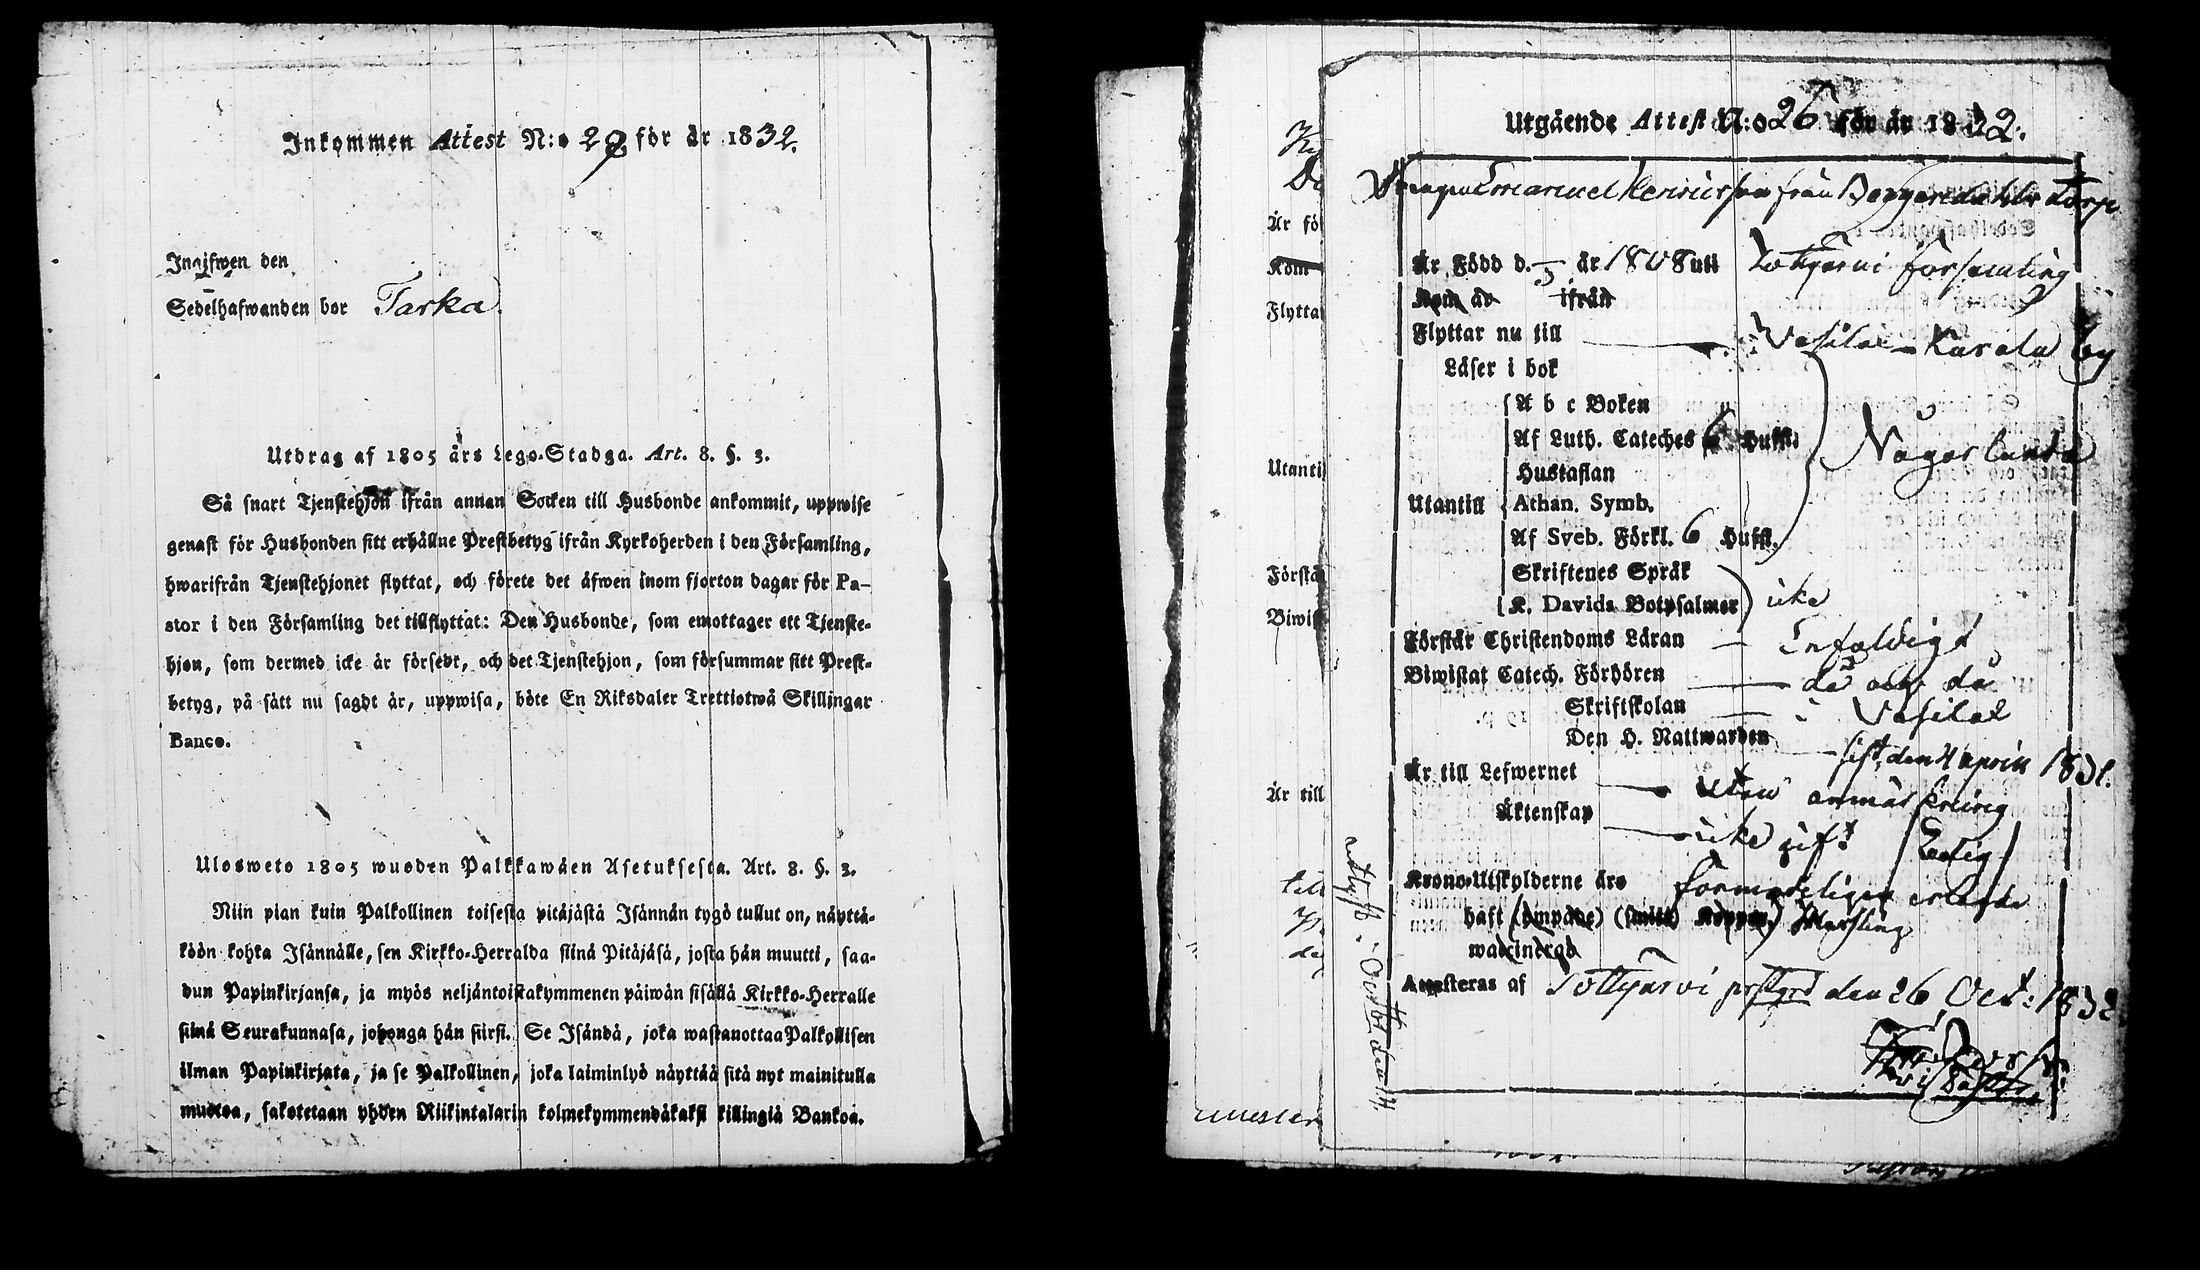 Inkommen Attest N:o 29 för år 1832.
Ingifwen den
Sedelhafwanden bor Tarka.
Utdrag af 1805 års Lego-Stadga. Art. 8. §. 3.
Så snart Tjenstehjon ifrån annan Socken till Husbonde ankommit, uppwise
genast för Husbonden sitt erhållne Prestbetyg ifrån Kyrkoherden i den Församling,
hwarifrån Tjenstehjonet flyttat, och förete det äfwen inom fjorton dagar för Pa-
stor i den Församling det tillflyttat: Den Husbonde, som emottager ett Tjenste-
hjon, som dermed icke är försedt, och det Tjenstehjon, som försummar sitt Prest-
betyg, på sätt nu sagdt är, uppwisa, böte En Riksdaler Trettiotwå Skillingar
Banco.
Ulosweto 1805 wuoden Palkkawäen Asetuksesta. Art. 8. §. 3.
Niin pian kuin Palkollinen toisesta pitäjästä Isännän tygö tullut on, näyttä-
köön kohta Isännälle, sen Kirkko-Herralda siinä Pitäjäsä, josta hän muutti, saa-
dun Papinkirjansa, ja myös neljäntoistakymmenen päiwän sisällä Kirkko-Herralle
siinä Seurakunnasa, johonga hän siirsi. Se Isändä, joka wastanottaa Palkollisen
ilman Papinkirjata, ja se Palkollinen, joka laiminlyö näyttää sitä nyt mainitulla
muotoa, sakotetaan yhden Riikintalarin kolmekymmendäkaksi killingiä Bankoa.
Utgående Attest N:o 26 för år 1832.
Drengen Emanuel Henricsson från Torp
Är Född d. — år 1808 uti Församling
Kom år ifrån
Flyttar nu till Karala by
Läser i bok
A b c Boken
Af Luth. Cateches 6 Hufst.
Hustaflan
Utantill Athan. Symb.
Af Sveb. Förkl. 6 Hufst.
Någorlunda
Skriftenes Språk
K. Davids Botpsalmer icke
Förstår Christendoms Läran — Enfaldigt
Biwistat Catech. Förhören — då och då
Skriftskolan —
Den H. Nattwarden — sist den 4 April 1832.
Är till Lefwernet — utan anmärkning
Äktenskap — icke gift Ledig
Krono-Utskylderne äro förmodeligen erlagde
haft (ympade) (smitt) Koppor
waccinerad
Attesteras af Pottjärvi prstgrd den 26 Oct: 1832